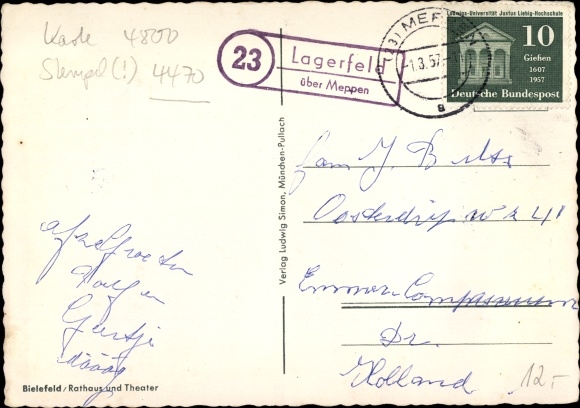 Karte 4800
Stempel(!) 4470
23
Lagerfeld
über Meppen
(23) MEPPEN
-1.3.57-
a
Ludwigs-Universität Justus Liebig-Hochschule
10
Gießen
1607
1957
Deutsche Bundespost
Fam J. B
Oosterdiep wz 41
Emmer-Compascuum
Dr.
Holland
Geertje
Verlag Ludwig Simon, München-Pullach
Bielefeld / Rathaus und Theater
12.-